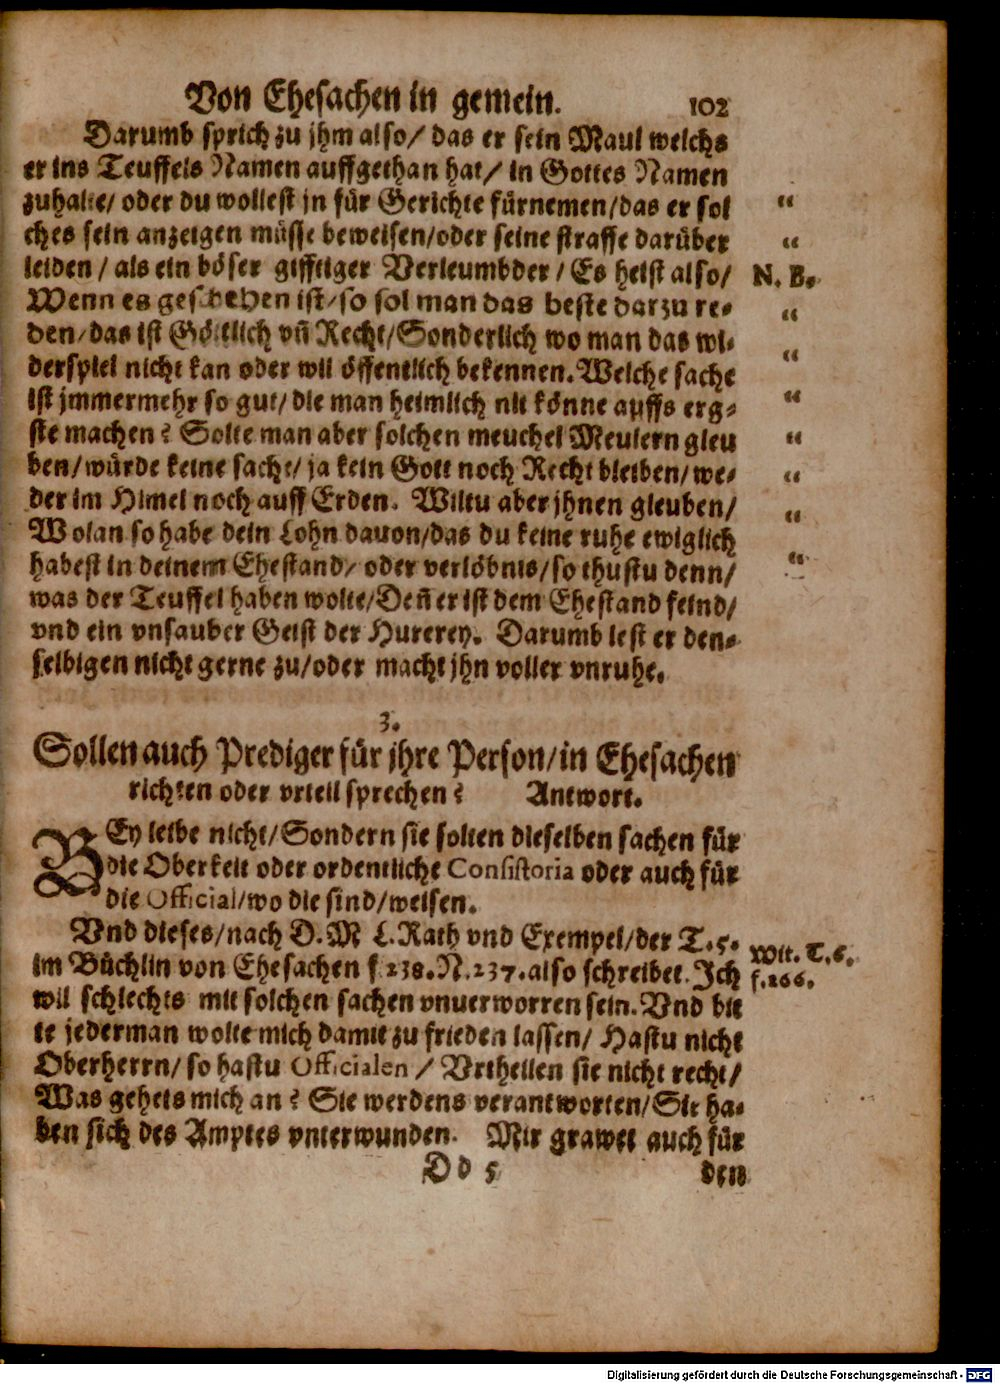 Von Ehesachen in gemein. 102
Darumb sprich zu jhm also/ das er sein Maul welchs
er ins Teuffels Namen auffgethan hat/ in Gottes Namen
zuhalte/ oder du wollest jn für Gerichte fürnemen/das er sol
ches sein anzeigen müsse beweisen/oder seine straffe darüber
leiden / als ein böser gifftiger Verleumbder / Es heist also/ N. B.
Wenn es geschehen ist/so sol man das beste darzu re-
den/das ist Göttlich vñ Recht/Sonderlich wo man das wi-
derspiel nicht kan oder wil öffentlich bekennen. Welche sache
ist jmmermehr so gut/ die man heimlich nit könne auffs erg-
ste machen? Solte man aber solchen meuchel Meulern gleu
ben/würde keine sache/ ja kein Gott noch Recht bleiben/ we-
der im Himel noch auff Erden. Wiltu aber jhnen gleuben/
Wolan so habe dein Lohn dauon/das du keine ruhe ewiglich
habest in deinem Ehestand/ oder verlöbnis/so thustu denn/
was der Teuffel haben wolte/Deñ er ist dem Ehestand feind/
vnd ein vnsauber Geist der Hurerey. Darumb lest er den-
selbigen nicht gerne zu/oder macht jhn voller vnruhe.
3.
Sollen auch Prediger für jhre Person/in Ehesachen
richten oder vrteil sprechen? Antwort.
BEy leibe nicht/Sondern sie sollen dieselben sachen für
die Oberkeit oder ordentliche Consistoria oder auch für
die Official/wo die sind/weisen.
Vnd dieses/nach D. M L. Rath vnd Exempel/der T. 5.
im Büchlin von Ehesachen f 238. N. 237. also schreibet. Jch
Wit. T. 6.
f. 266.
wil schlechts mit solchen sachen vnuerworren sein. Vnd bit
te jederman wolte mich damit zu frieden lassen/ Hastu nicht
Oberherrn/ so hastu Officialen / Vrtheilen sie nicht recht/
Was gehets mich an? Sie werdens verantworten/Sie ha-
ben sich des Amptes vnterwunden. Mir grawet auch für
Dd 5 den
Digitalisierung gefördert durch die Deutsche Forschungsgemeinschaft - DFG